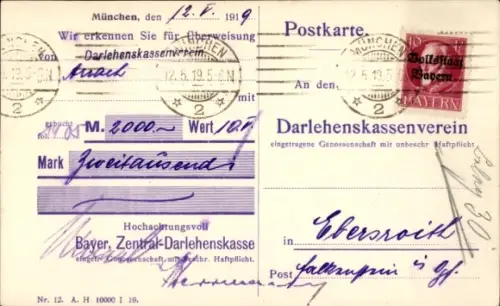 München, den 12. V. 1919
Wir erkennen Sie für Überweisung
von Darlehenskassenverein
mit
gebucht
fol.
M. 2000.— Wert 10.V
Mark Zweitausend
Hochachtungsvoll
Bayer. Zentral-Darlehenskasse
eingetr. Genossenschaft mit beschr. Haftpflicht.
Nr. 12. A. H 10000 I 19.
MÜNCHEN
12.5.19.5-6N
2
MÜNCHEN
12.5.19.5-6N
2
Postkarte.
Volksstaat
Bayern
BAYERN
An den
Darlehenskassenverein
eingetragene Genossenschaft mit unbeschr Haftpflicht
in Ebersroith
Post Falkenstein